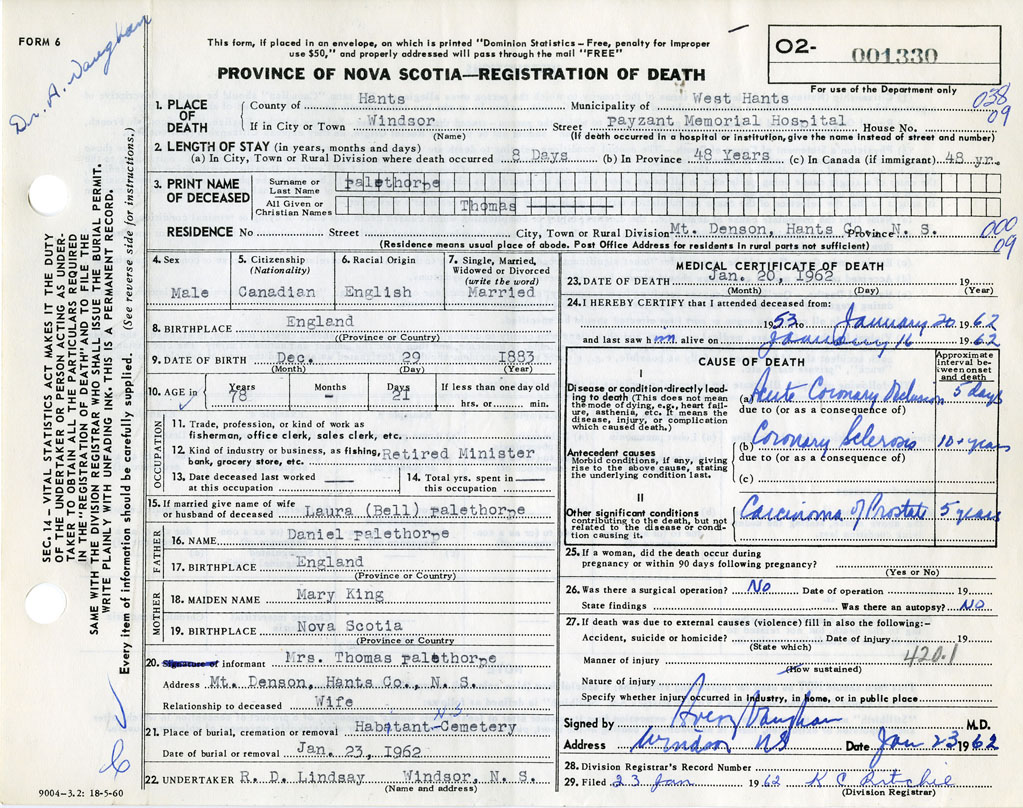 FORM 6
Dr. A. Vaughan
This form, if placed in an envelope, on which is printed "Dominion Statistics – Free, penalty for improper
use $50," and properly addressed will pass through the mail "FREE"
PROVINCE OF NOVA SCOTIA—REGISTRATION OF DEATH
O2- 001330
For use of the Department only
038
09
1. PLACE OF DEATH
County of Hants Municipality of West Hants
If in City or Town Windsor Street Payzant Memorial Hospital House No.
(Name) (If death occurred in a hospital or institution, give the name instead of street and number)
2. LENGTH OF STAY (in years, months and days)
(a) In City, Town or Rural Division where death occurred 8 Days (b) In Province 48 Years (c) In Canada (if immigrant) 48 yr.
3. PRINT NAME OF DECEASED
Surname or Last Name Palethorpe
All Given or Christian Names Thomas
RESIDENCE No Street City, Town or Rural Division Mt. Denson, Hants Co., N. S. Province
(Residence means usual place of abode. Post Office Address for residents in rural parts not sufficient)
000
09
4. Sex Male
5. Citizenship (Nationality) Canadian
6. Racial Origin English
7. Single, Married, Widowed or Divorced (write the word) Married
8. BIRTHPLACE England
((Province or Country)
9. DATE OF BIRTH Dec. 29 1883
(Month) (Day) (Year)
10. AGE in Years 78 Months - Days 21 If less than one day old hrs. or min.
OCCUPATION
11. Trade, profession, or kind of work as
fisherman, office clerk, sales clerk, etc.
12. Kind of industry or business, as fishing,
bank, grocery store, etc. Retired Minister
13. Date deceased last worked
at this occupation
14. Total yrs. spent in
this occupation
15. If married give name of wife
or husband of deceased Laura (Bell) Palethorpe
FATHER
16. NAME Daniel Palethorpe
17. BIRTHPLACE England
(Province or Country)
MOTHER
18. MAIDEN NAME Mary King
19. BIRTHPLACE Nova Scotia
(Province or Country
20. Signature of informant Mrs. Thomas Palethorpe
Address Mt. Denson, Hants Co., N. S.
Relationship to deceased Wife
N.S.
21. Place of burial, cremation or removal Habitant-Cemetery
Date of burial or removal Jan. 23, 1962
22. UNDERTAKER R. D. Lindsay Windsor, N. S.
(Name and address)
9004-3.2: 18-5-60
SEC. 14 – VITAL STATISTICS ACT MAKES IT THE DUTY
OF THE UNDERTAKER OR PERSON ACTING AS UNDER-
TAKER TO OBTAIN ALL THE PARTICULARS REQUIRED
IN THE "REGISTRATION OF DEATH" AND TO FILE THE
SAME WITH THE DIVISION REGISTRAR WHO SHALL ISSUE THE BURIAL PERMIT.
WRITE PLAINLY WITH UNFADING INK. THIS IS A PERMANENT RECORD.
Every item of information should be carefully supplied. (See reverse side for instructions.)
MEDICAL CERTIFICATE OF DEATH
23. DATE OF DEATH Jan. 20, 1962 19
(Month) (Day) (Year)
24. I HEREBY CERTIFY that I attended deceased from:
1953 to January 20 1962
and last saw him alive on January 16 1962
CAUSE OF DEATH
Approximate interval between onset and death
I
Disease or condition directly lead-
ing to death (This does not mean
the mode of dying, e.g., heart fail-
ure, asthenia, etc. It means the
disease, injury, or complication
which caused death.)
(a) Acute Coronary Occlusion 5 days
due to (or as a consequence of)
Antecedent causes
Morbid conditions, if any, giving
rise to the above cause, stating
the underlying condition last.
(b) Coronary Sclerosis 10+ years
due to (or as a consequence of)
(c)
II
Other significant conditions
contributing to the death, but not
related to the disease or condi-
tion causing it.
Carcinoma of Prostate 5 years
25. If a woman, did the death occur during
pregnancy or within 90 days following pregnancy?
(Yes or No)
26. Was there a surgical operation? No Date of operation 19
State findings Was there an autopsy? No
27. If death was due to external causes (violence) fill in also the following:-
Accident, suicide or homicide? Date of injury 19
(State which)
420.1
Manner of injury
(How sustained)
Nature of injury
Specify whether injury occurred in Industry, in home, or in public place
Signed by Avery Vaughan M.D.
Address Windsor NS Date Jan 23 1962
28. Division Registrar's Record Number
29. Filed 23 Jan 1962 K C Ritchie
(Division Registrar)